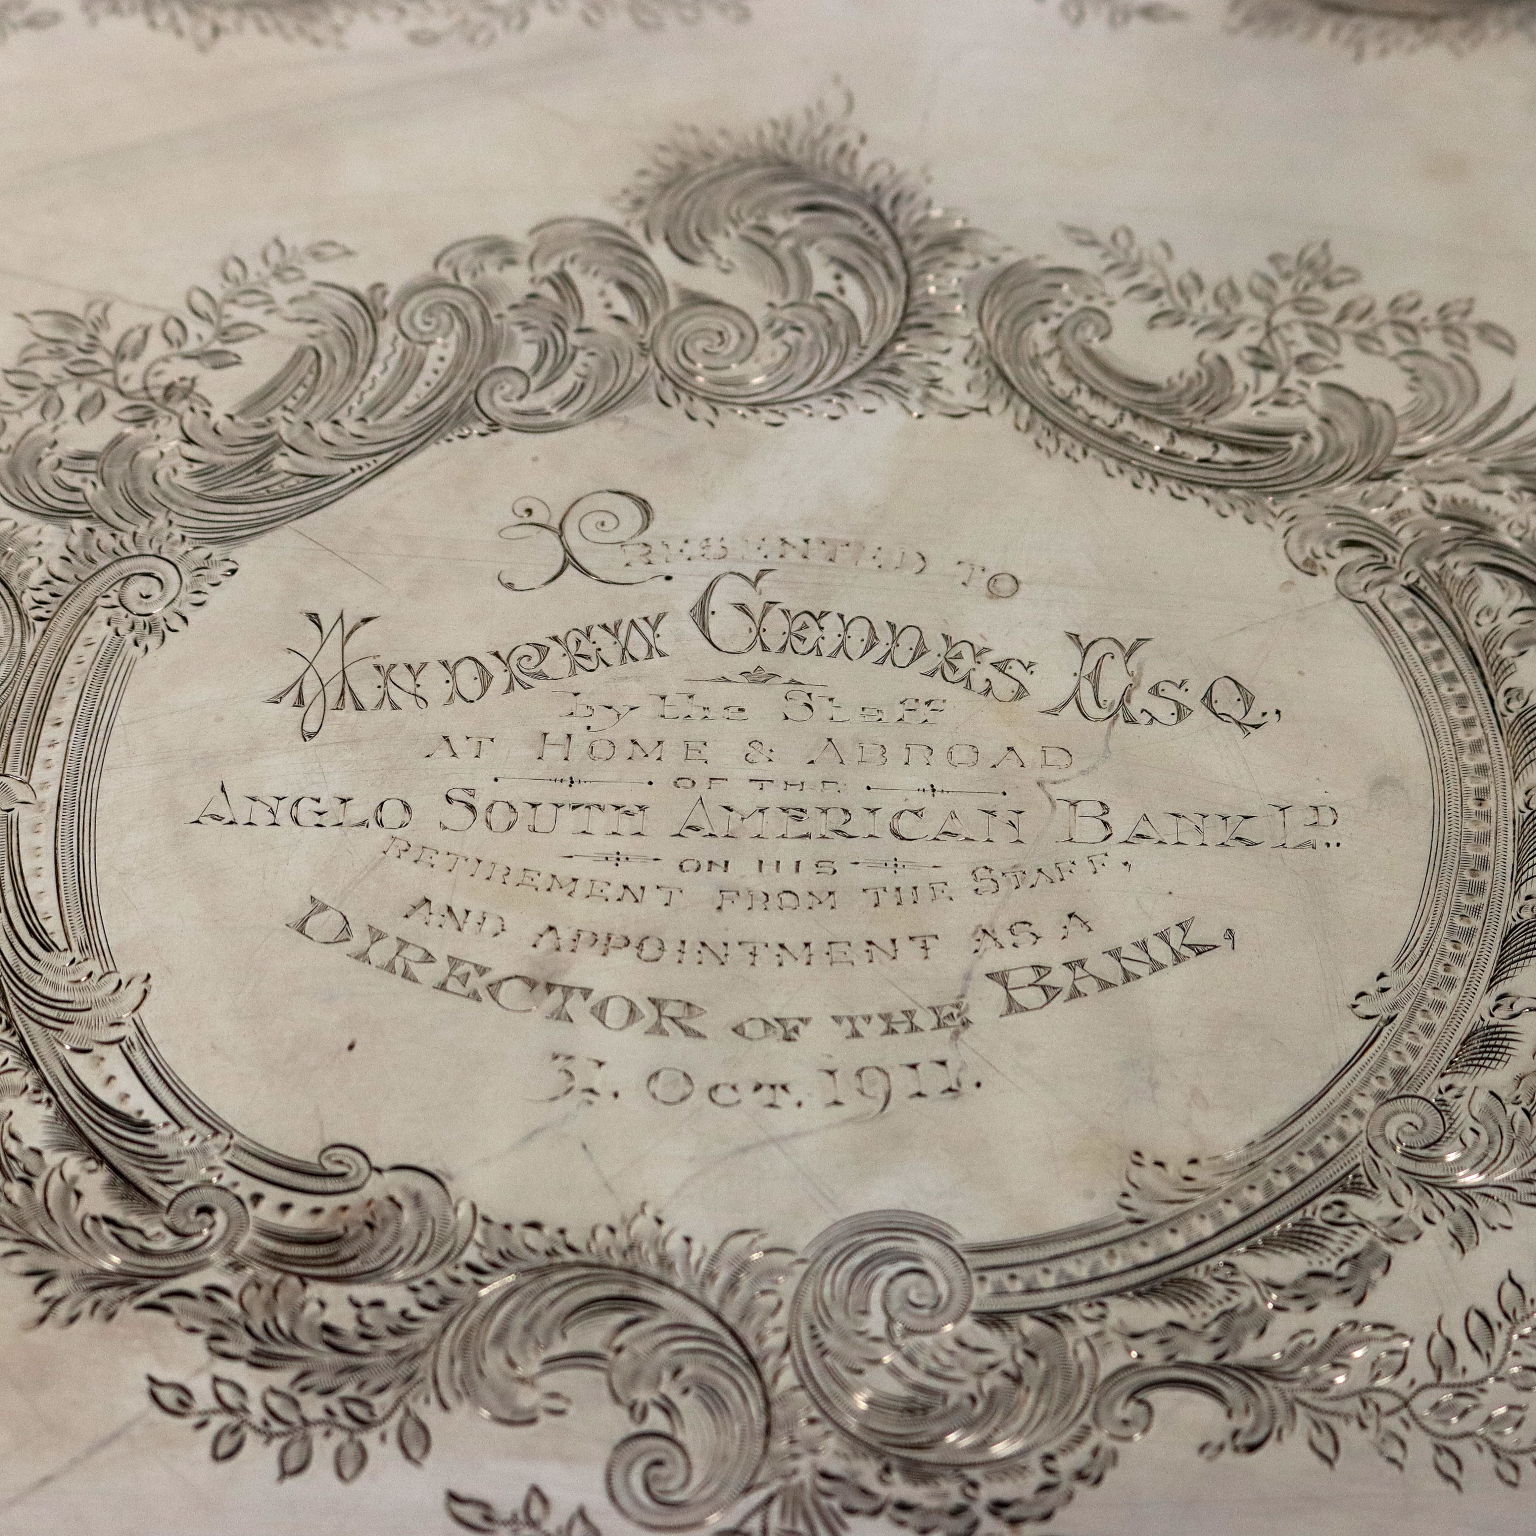 PRESENTED TO
ANDREW GEDDES ESQ.,
by the Staff
AT HOME & ABROAD
OF THE
ANGLO SOUTH AMERICAN BANK LD.
ON HIS
RETIREMENT FROM THE STAFF,
AND APPOINTMENT AS A
DIRECTOR OF THE BANK,
31. OCT. 1911.